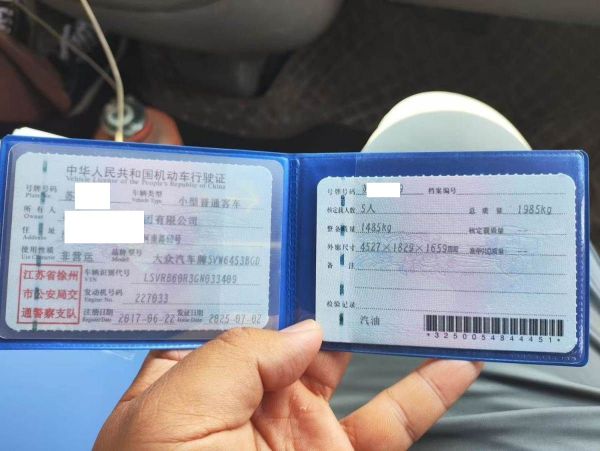 中华人民共和国机动车行驶证
Vehicle License of the People's Republic of China
号牌号码 Plate No. 苏 车辆类型 Vehicle Type 小型普通客车
所有人 Owner 有限公司
住址 Address
使用性质 Use Character 非营运 品牌型号 Model 大众汽车牌SVW6453BGD
江苏省徐州
市公安局交
通警察支队
车辆识别代号 VIN LSVRB60R3GN033409
发动机号码 Engine No. 227033
注册日期 Register Date 2017-06-22 发证日期 Issue Date 2025-07-02
号牌号码 档案编号
核定载人数 5人 总质量 1985kg
整备质量 1485kg 核定载质量
外廓尺寸 4527×1829×1659mm 准牵引总质量
备注
检验记录
汽油
*3250054844451*